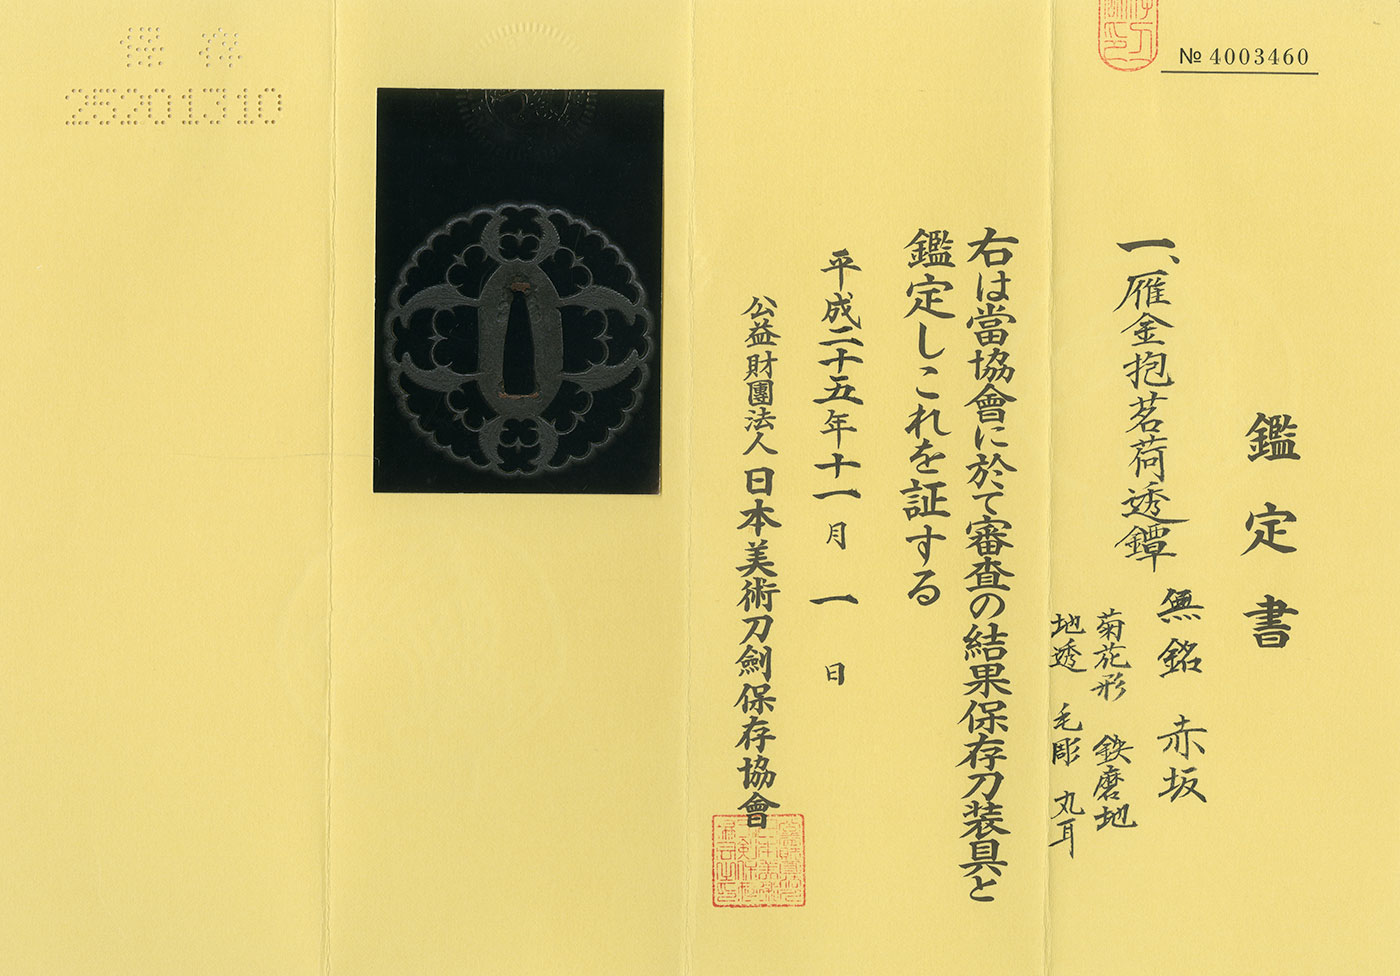 № 4003460
鑑定書
一、雁金抱茗荷透鐔
無銘 赤坂
菊花形 鉄磨地
地透 毛彫 丸耳
右は當協會に於て審査の結果保存刀装具と
鑑定しこれを証する
平成二十五年十一月一日
公益財團法人 日本美術刀劍保存協會
保存
25201310